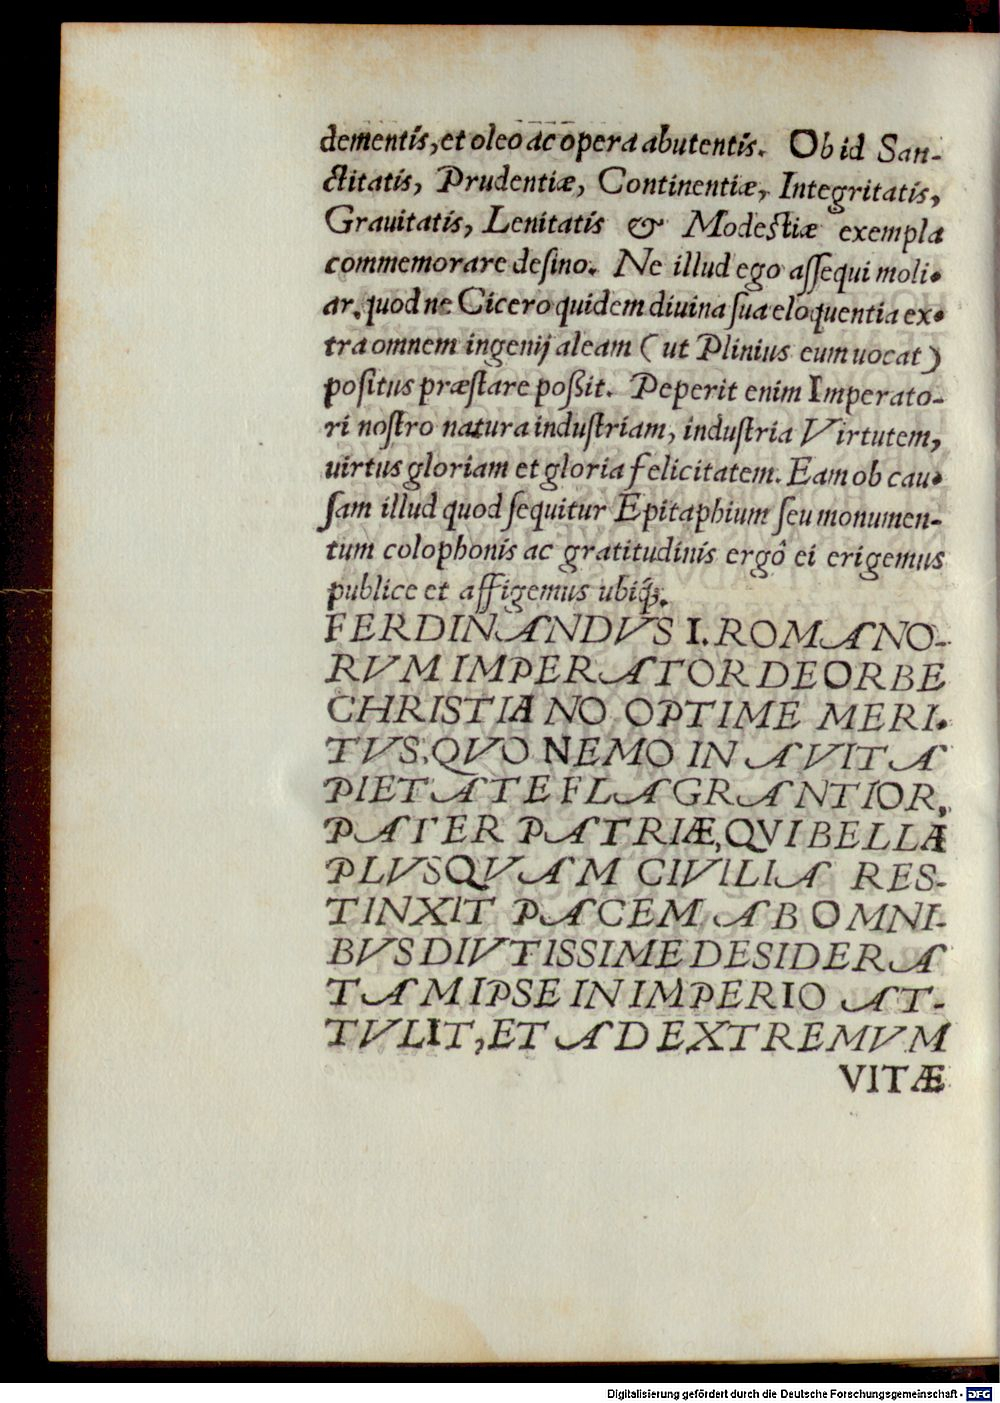 dementis, et oleo ac opera abutentis. Ob id San-
ctitatis, Prudentiæ, Continentiæ, Integritatis,
Grauitatis, Lenitatis & Modestiæ exempla
commemorare desino. Ne illud ego aſſequi moli-
ar, quod ne Cicero quidem diuina ſua eloquentia ex-
tra omnem ingenij aleam ( ut Plinius eum uocat )
poſitus præſtare poßit. Peperit enim Imperato-
ri noſtro natura induſtriam, induſtria Virtutem,
uirtus gloriam et gloria felicitatem. Eam ob cau-
ſam illud quod ſequitur Epitaphium ſeu monumen-
tum colophonis ac gratitudinis ergô ei erigemus
publice et affigemus ubiq́;.
FERDINANDVS I. ROMANO-
RVM IMPERATOR DE ORBE
CHRISTIANO OPTIME MERI-
TVS, QVO NEMO IN AVITA
PIETATE FLAGRANTIOR,
PATER PATRIÆ, QVI BELLA
PLVSQVAM CIVILIA RES-
TINXIT PACEM AB OMNI-
BVS DIVTISSIME DESIDERA
TAM IPSE IN IMPERIO AT-
TVLIT, ET AD EXTREMVM
VITÆ
Digitalisierung gefördert durch die Deutsche Forschungsgemeinschaft - DFG